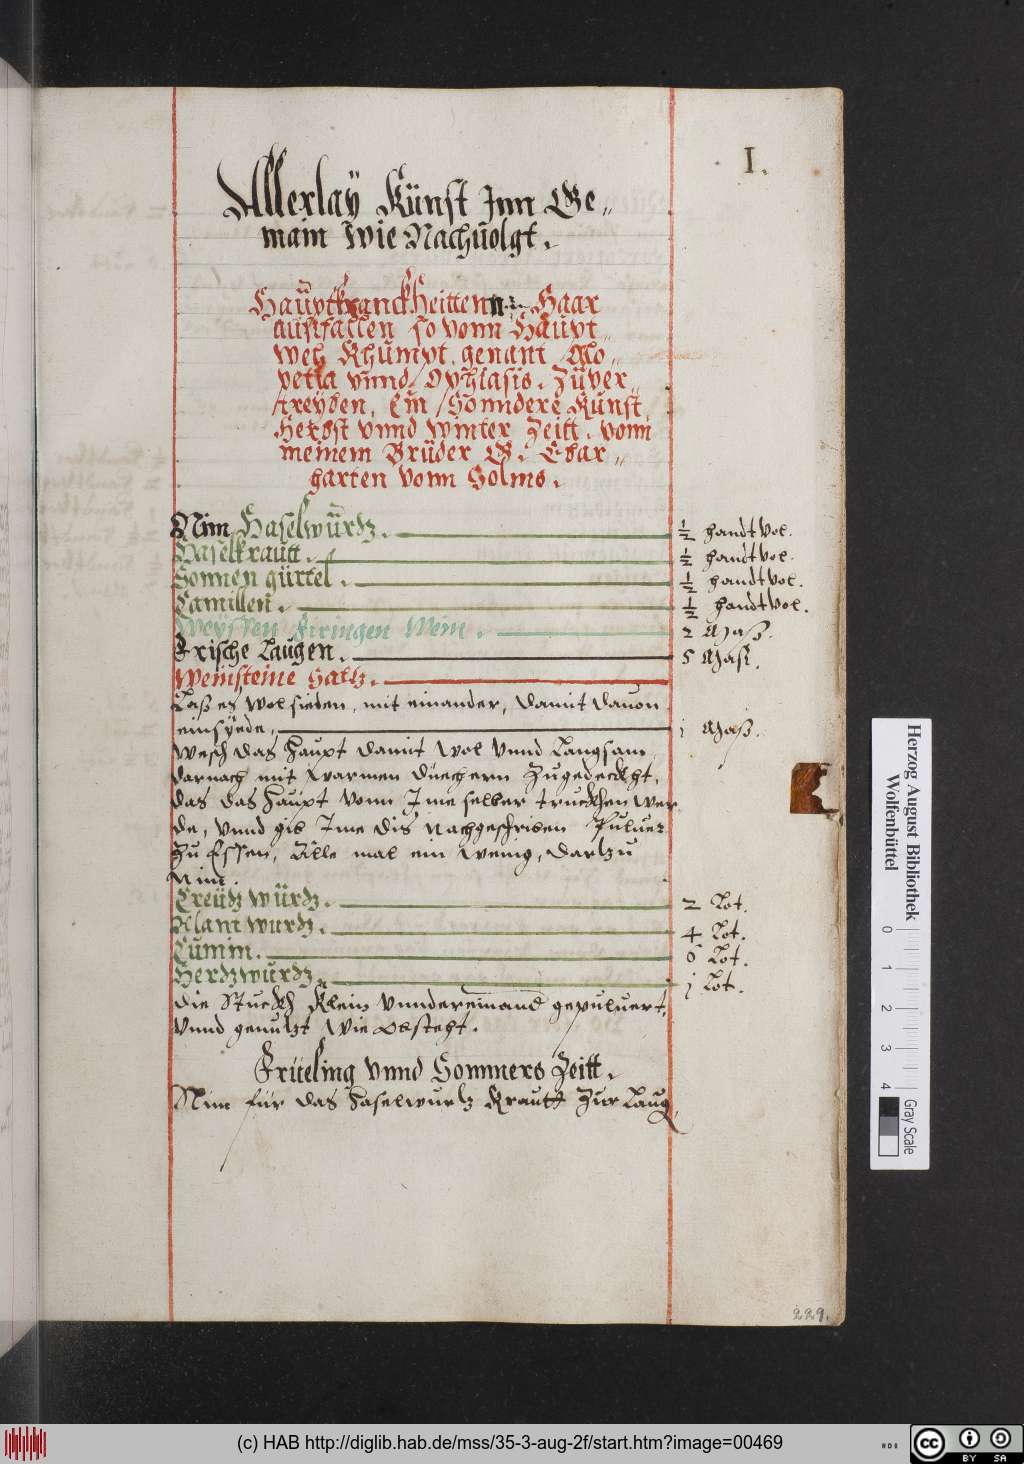 I.
Allerlay Künst Inn Ge„
main Wie Nachuolgt.
Hauptkranckheitten Haar
ausfallen so vonn Haupt„
weh Khumpt. genant Alo„
petia vnnd Ophiasis. Züver„
treyben, Ein Sonndere Künst
Herbst vnnd Winter Zeitt. vonn
meinem Brüder G. Ebar„
harten vonn Solms.
Nim Haselwürtz. ½ handtvol.
Haselkrautt. ½ handtvol.
Sonnen gürtel. ½ handtvol.
Camillen. ½ handtvol.
Weyssen Firingen Wein. 2 Mass.
Frische Laugen. 5 Mass.
Weinsteine Saltz.
Lass es wol sieden, mit einander, damit dauon
einsÿede, 1 Mass.
Wesch das Haupt damit wol vnnd Langsam
darnach mit warmen düechern zugedeckht,
das das Haupt vonn Ime selber truckhen wer
de, vnnd gib Ime dis nachgeschriben Puluer
zu Essen, Alle mal ein wenig, dartzu
Nim.
Creütz würtz. 2 Lot.
Alant wurtz. 4 Lot.
Cumin. 6 Lot.
Hertzwurtz. j Lot.
die Stuckh Klein vnndereinand gepuluert,
vnnd genutzt wie obsteht.
Früeling vnnd Sommers Zeitt.
Nim für das Haselwurtz Krautt zur Laug,
229.
Herzog August Bibliothek
Wolfenbüttel
0 1 2 3 4
Gray Scale
(c) HAB http://diglib.hab.de/mss/35-3-aug-2f/start.htm?image=00469
cc BY SA